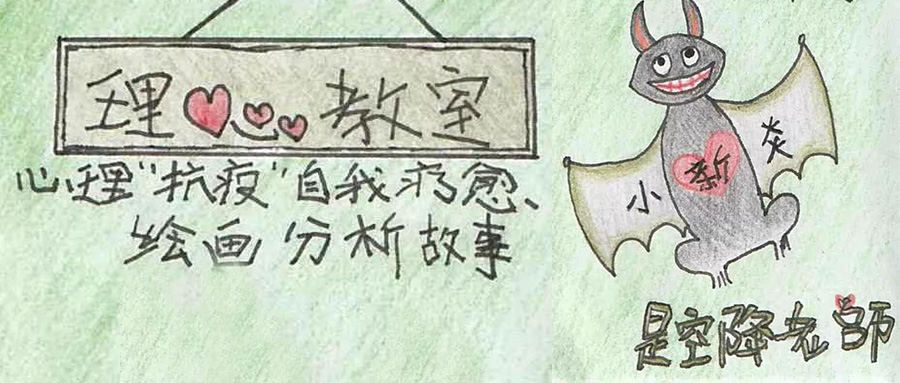 理心教室
心理"抗疫"自我疗愈、
绘画分析故事
小新炎
是空降老師